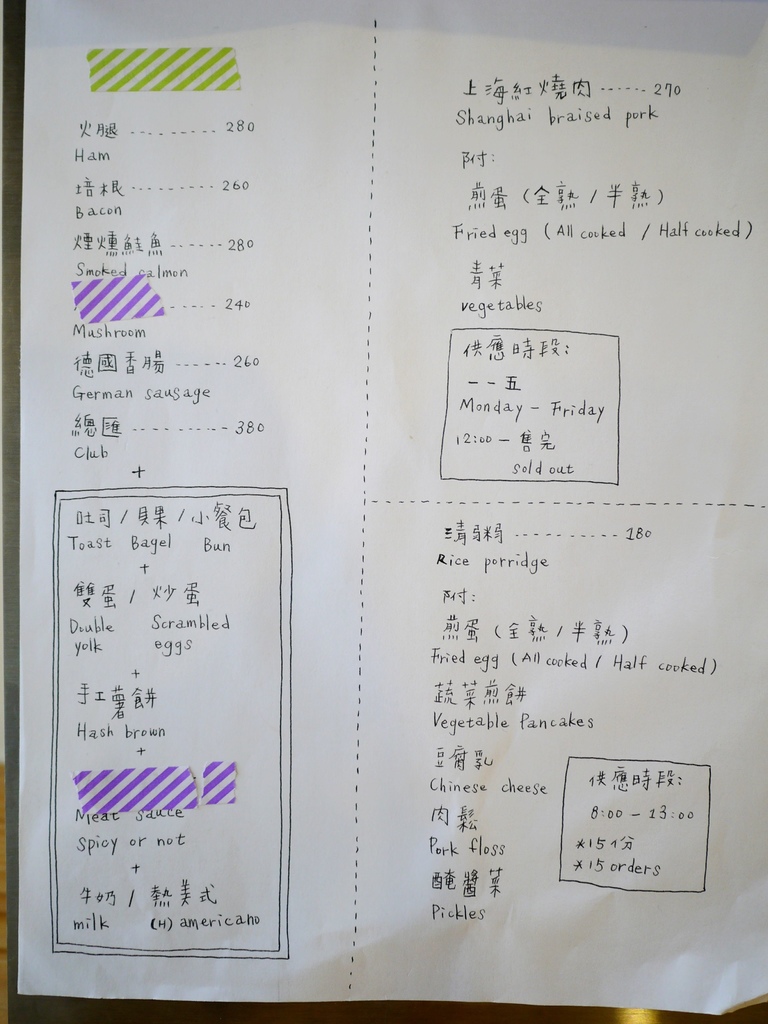 火腿 --------- 280
Ham
培根 --------- 260
Bacon
煙燻鮭魚 ------ 280
Smoked salmon
----- 240
Mushroom
德國香腸 ------ 260
German sausage
總匯 ---------- 380
Club
+
吐司 / 貝果 / 小餐包
Toast Bagel Bun
+
雙蛋 / 炒蛋
Double Scrambled
yolk eggs
+
手工薯餅
Hash brown
+
Meat sauce
Spicy or not
+
牛奶 / 熱美式
milk (H) americano
上海紅燒肉 ------ 270
Shanghai braised pork
附:
煎蛋 (全熟 / 半熟)
Fried egg (All cooked / Half cooked)
青菜
vegetables
供應時段:
一 - 五
Monday - Friday
12:00 - 售完
sold out
清粥 ---------- 180
Rice porridge
附:
煎蛋 (全熟 / 半熟)
Fried egg (All cooked / Half cooked)
蔬菜煎餅
Vegetable Pancakes
豆腐乳
Chinese cheese
肉鬆
Pork floss
醃醬菜
Pickles
供應時段:
8:00 - 13:00
*15份
*15 orders